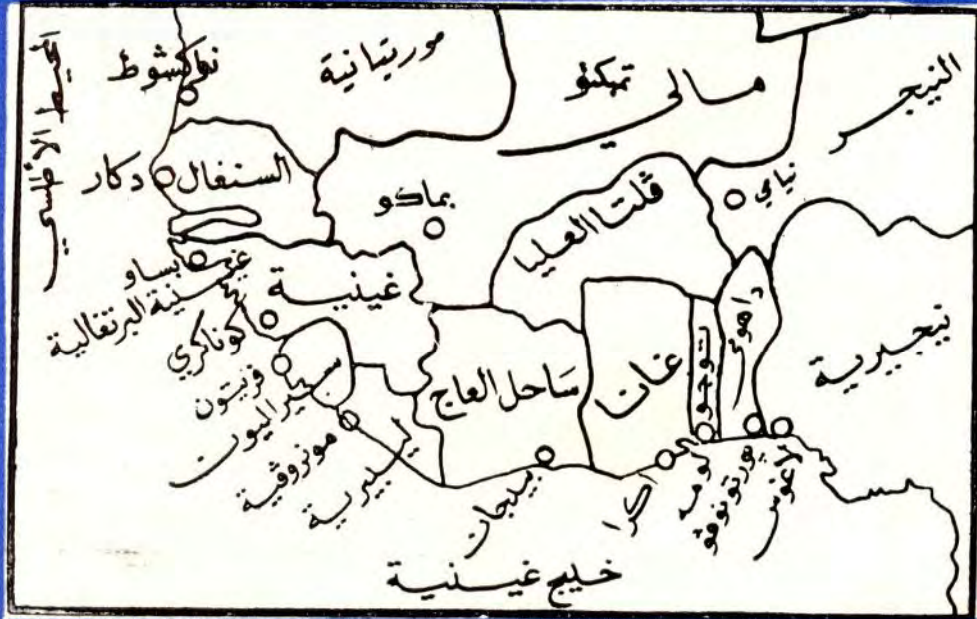 المحيط الأطلسي
نواكشوط
موريتانية
تمبكتو
مالي
النيجر
دكار
السنغال
بماكو
ڤلتا العليا
نيامي
بساو
غينية البرتغالية
غينية
كوناكري
فريتون
سييراليون
مونروڤية
ليبيرية
ساحل العاج
غان
توجو
داهومي
نيجيرية
بيدجان
اكرا
لومه
پورتونوڤو
لاغوس
خليج غينية